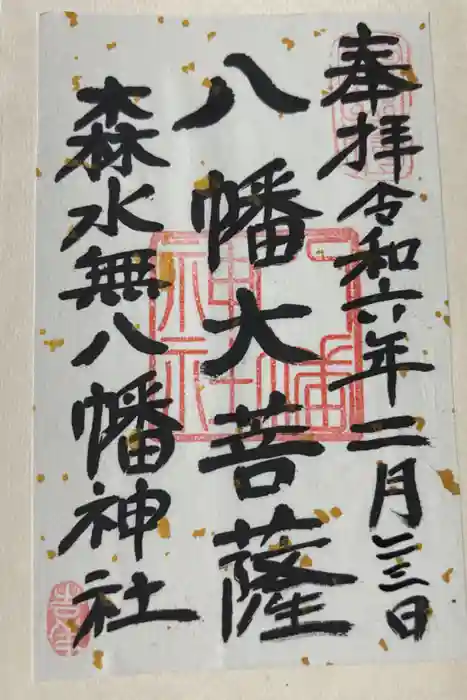 奉拝令和六年二月二三日
八幡大菩薩
森水無八幡神社